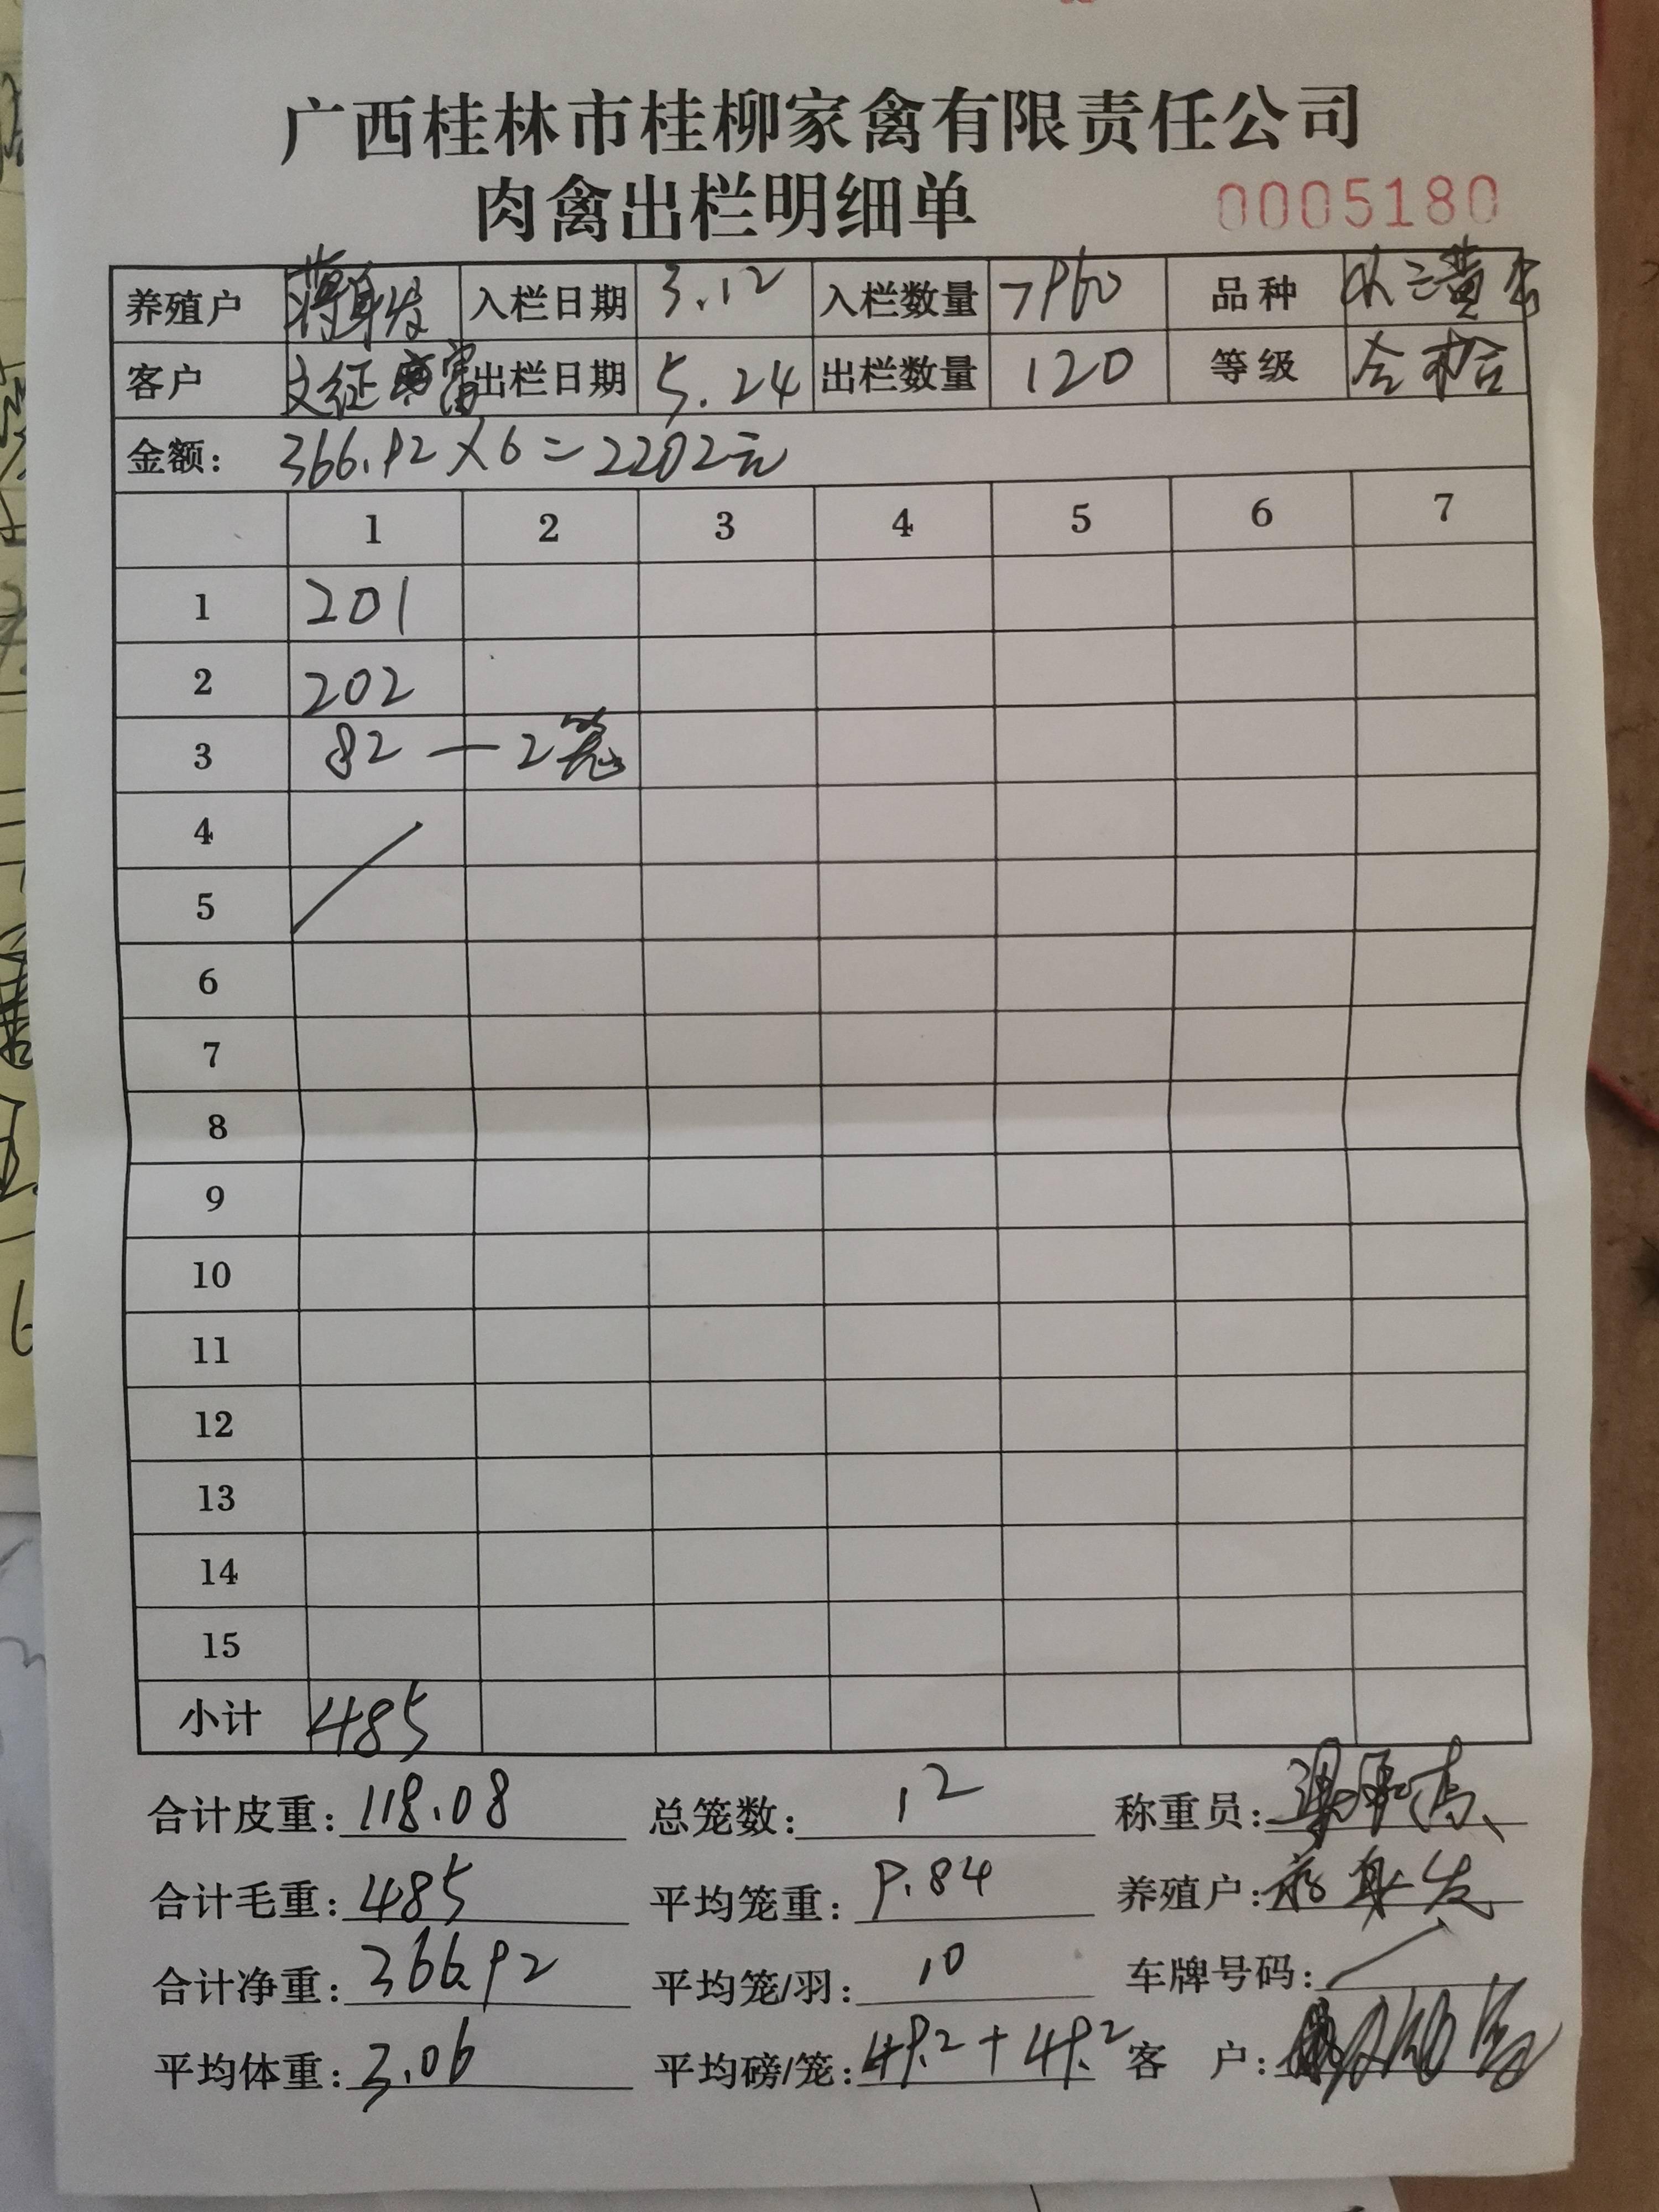 广西桂林市桂柳家禽有限责任公司
肉禽出栏明细单 0005180
养殖户 蒋身发 入栏日期 3.12 入栏数量 7960 品种 三黄
客户 文征 出栏日期 5.24 出栏数量 120 等级 合格
金额: 366.92×6=2202元
1 2 3 4 5 6 7
1 201
2 202
3 82 — 2笼
4
5
6
7
8
9
10
11
12
13
14
15
小计 485
合计皮重: 118.08 总笼数: 12 称重员:
合计毛重: 485 平均笼重: 9.84 养殖户: 蒋身发
合计净重: 366.92 平均笼/羽: 10 车牌号码:
平均体重: 3.06 平均磅/笼: 49.2+49.2 客 户: